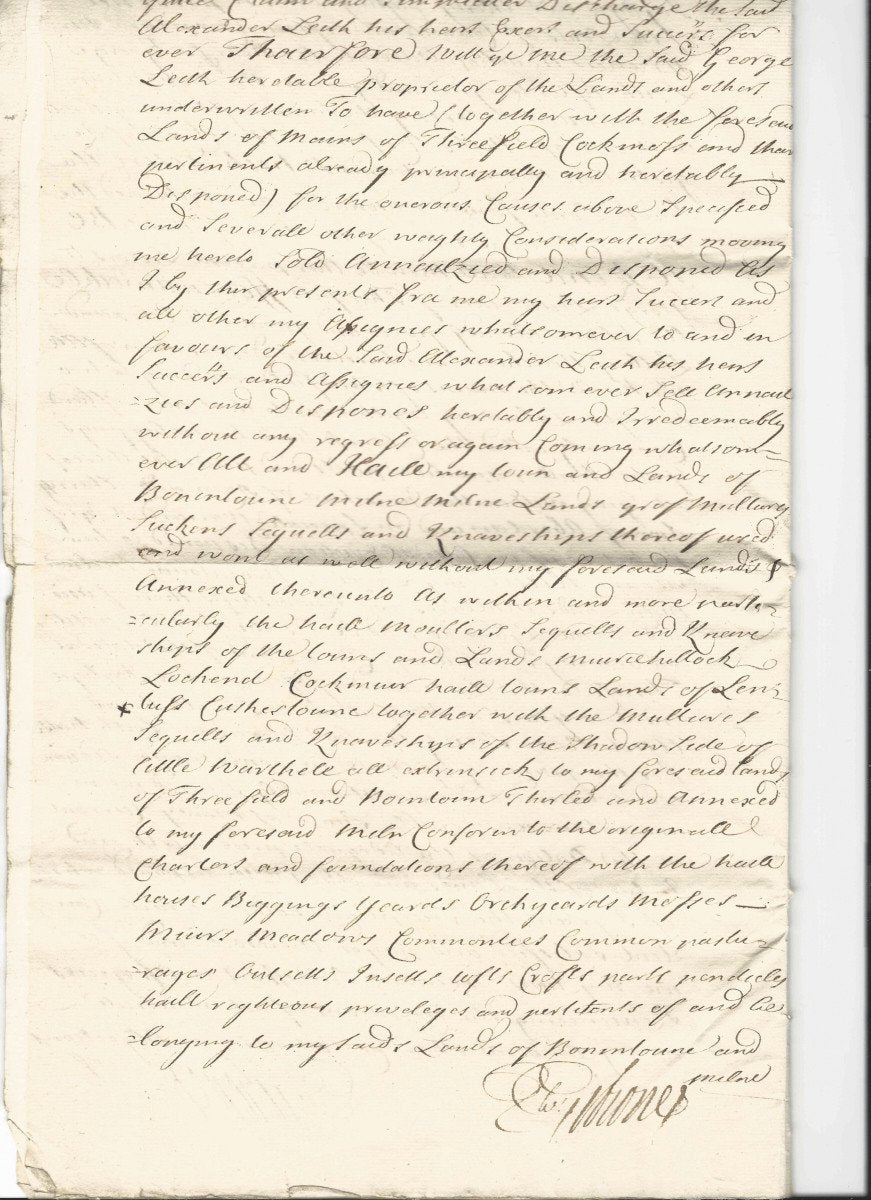 quite Claim and Simpliciter Discharge the said
Alexander Leith his heirs Exers and Succers for
ever Thairfore Will ye me the Said George
Leith heretable proprietor of the Lands and others
underwritten To have (together with the foresaid
Lands of Mains of Threefield Cockmoss and their
pertinents already principally and heretably
Disponed) for the onerous Causes above Specified
and Severall other weighty Considerations moving
me hereto Sold Annailzied and Disponed As
I by thir presents fra me my heirs Succers and
all other my Assignies whatsomever to and in
favours of the Said Alexander Leith his heirs
Succers and Assignies whatsomever Sell Annail
=zies and Dispones heretably and Irredeemably
without any regress or again Coming whatsom=
ever All and Haill my toun and Lands of
Bonintoune Milne Milne Lands yrof Multures
Suckens Sequells and Knaveships thereof used
and wont as well without my foresaid Lands
Annexed thereunto As within and more parti=
=cularly the haill Moulters Sequells and Knave
ships of the touns and Lands Muirehillock
Lochend Cockmuir haill touns Lands of Len=
tuss Cushestoune together with the Multures
Sequells and Knaveships of the Shadow Side of
little Warthell all extrinsick to my foresaid lands
of Threefield and Bointoun Thirled and Annexed
to my foresaid Miln Conform to the originall
Charters and foundations thereof with the haill
houses Biggings Yeards Orchyeards Mosses
Muirs Meadows Commonties Common pastu=
=rages Outsetts Insetts tofts Crofts parts pendicles
haill righteous priveleges and pertitents of and be
=longing to my saids Lands of Bonintoune and
Milne